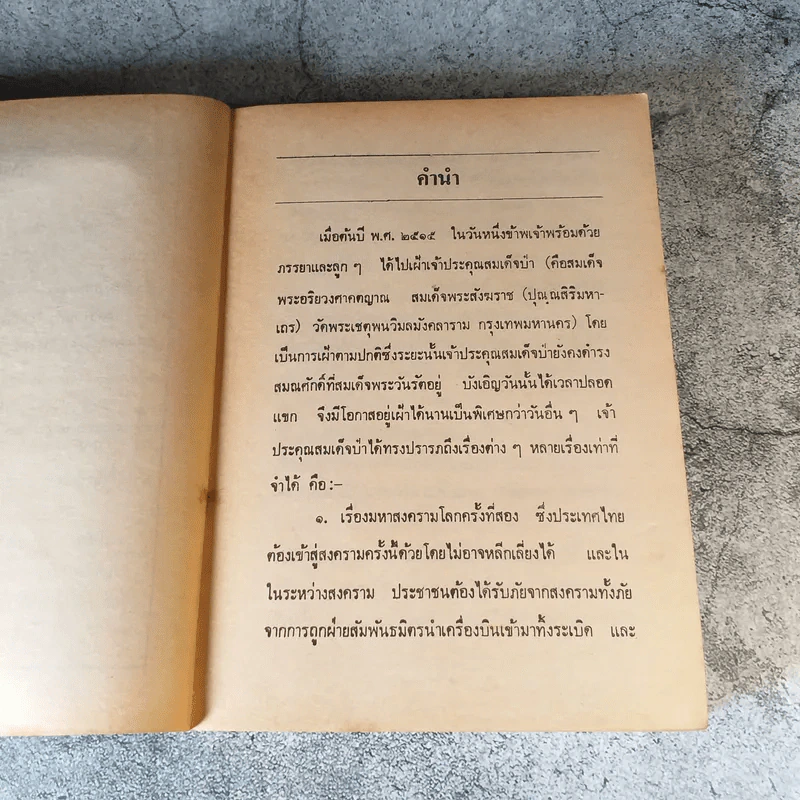 คำนำ
เมื่อต้นปี พ.ศ. ๒๕๑๕ ในวันหนึ่งข้าพเจ้าพร้อมด้วย
ภรรยาและลูก ๆ ได้ไปเฝ้าเจ้าประคุณสมเด็จป๋า (คือสมเด็จ
พระอริยวงศาคตญาณ สมเด็จพระสังฆราช (ปุณฺณสิริมหา-
เถร) วัดพระเชตุพนวิมลมังคลาราม กรุงเทพมหานคร) โดย
เป็นการเฝ้าตามปกติซึ่งระยะนั้นเจ้าประคุณสมเด็จป๋ายังคงดำรง
สมณศักดิ์ที่สมเด็จพระวันรัตอยู่ บังเอิญวันนั้นได้เวลาปลอด
แขก จึงมีโอกาสอยู่เฝ้าได้นานเป็นพิเศษกว่าวันอื่น ๆ เจ้า
ประคุณสมเด็จป๋าได้ทรงปรารภถึงเรื่องต่าง ๆ หลายเรื่องเท่าที่
จำได้ คือ :–
๑. เรื่องมหาสงครามโลกครั้งที่สอง ซึ่งประเทศไทย
ต้องเข้าสู่สงครามครั้งนี้ด้วยโดยไม่อาจหลีกเลี่ยงได้ และใน
ในระหว่างสงคราม ประชาชนต้องได้รับภัยจากสงครามทั้งภัย
จากการถูกฝ่ายสัมพันธมิตรนำเครื่องบินเข้ามาทิ้งระเบิด และ